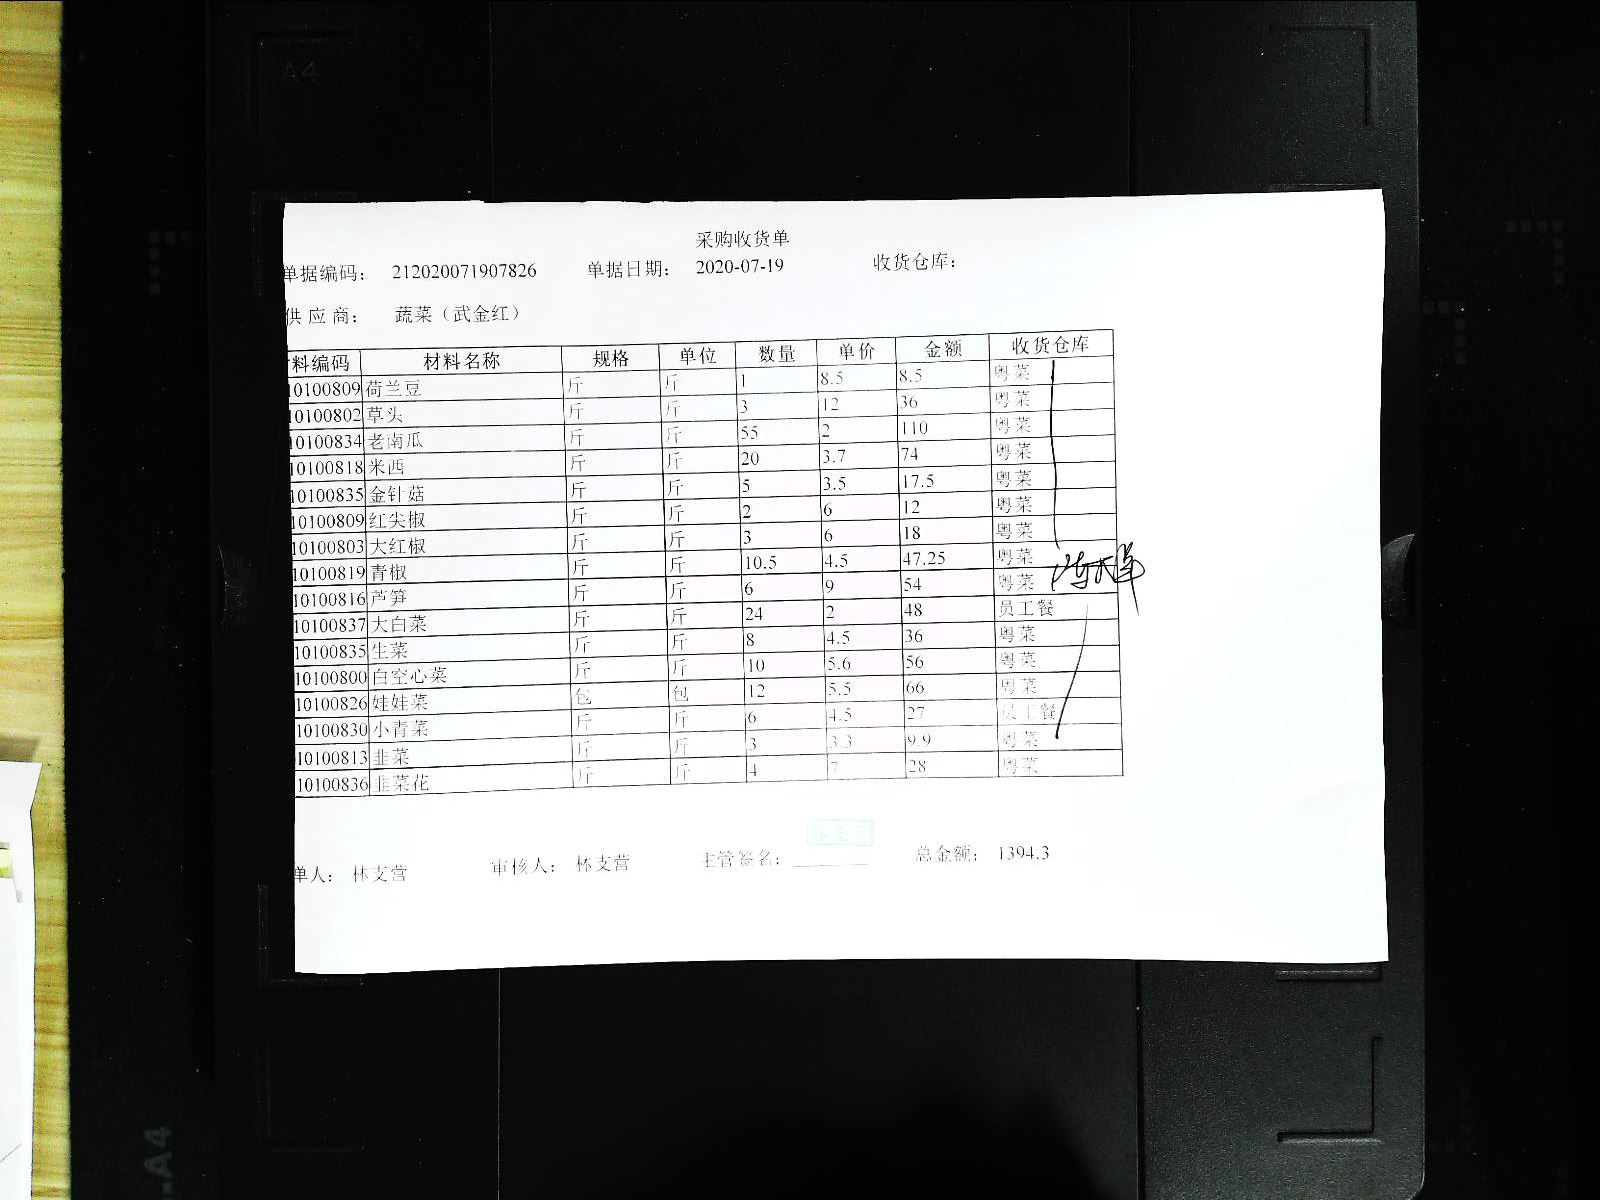 A4
采购收货单
单据编码： 212020071907826 单据日期： 2020-07-19 收货仓库：
供应商： 蔬菜（武金红）
料编码 材料名称 规格 单位 数量 单价 金额 收货仓库
10100809 荷兰豆 斤 斤 1 8.5 8.5 粤菜
10100802 草头 斤 斤 3 12 36 粤菜
10100834 老南瓜 斤 斤 55 2 110 粤菜
10100818 米西 斤 斤 20 3.7 74 粤菜
10100835 金针菇 斤 斤 5 3.5 17.5 粤菜
10100809 红尖椒 斤 斤 2 6 12 粤菜
10100803 大红椒 斤 斤 3 6 18 粤菜
10100819 青椒 斤 斤 10.5 4.5 47.25 粤菜
10100816 芦笋 斤 斤 6 9 54 粤菜
10100837 大白菜 斤 斤 24 2 48 员工餐
10100835 生菜 斤 斤 8 4.5 36 粤菜
10100800 白空心菜 斤 斤 10 5.6 56 粤菜
10100826 娃娃菜 包 包 12 5.5 66 粤菜
10100830 小青菜 斤 斤 6 4.5 27 员工餐
10100813 韭菜 斤 斤 3 3.3 9.9 粤菜
10100836 韭菜花 斤 斤 4 7 28 粤菜
单人： 林支营 审核人： 林支营 主管签名： 总金额： 1394.3
A4